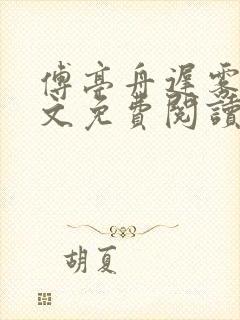 傅亭舟遲霧
文免費閱讀
胡夏